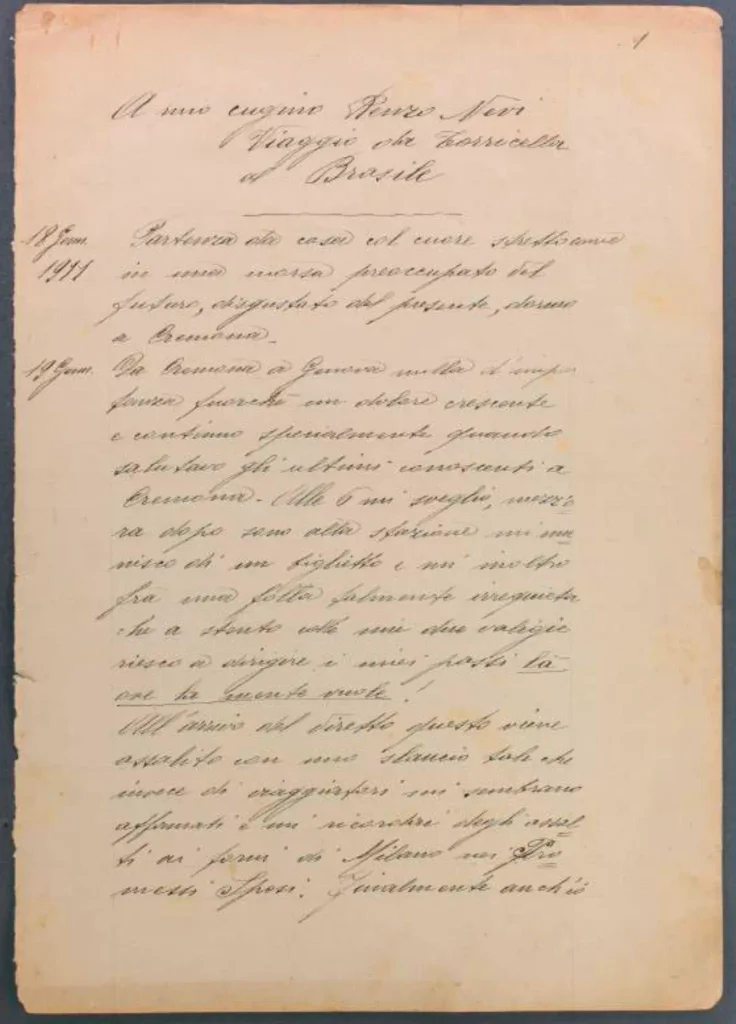 1
A mio cugino Renzo Nevi
Viaggio da Torricella
al Brasile
18 Genn. Partenza da casa col cuore stretto come
1911 in una morsa preoccupato del
futuro, disgustato del presente, dormo
a Cremona.
19 Genn. Da Cremona a Genova nulla d'impor
tanza fuorchè un dolore crescente
e continuo specialmente quando
salutavo gli ultimi conoscenti a
Cremona. Alle 6 mi sveglio, mezz'o=
ra dopo sono alla stazione mi mu=
nisco di un biglietto e mi inoltro
fra una folla talmente irrequieta
che a stento colle mie due valigie
riesco a dirigere i miei passi là
ove la mente vuole!
All'arrivo del diretto questo viene
assalito con uno slancio tale che
invece di viaggiatori mi sembrano
affamati e mi ricordai degli assal=
ti ai forni di Milano nei Pro=
messi Sposi. Finalmente anch'io